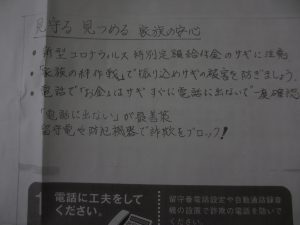 見守る 見つめる 家族の安心
・新型コロナウィルス 特別定額給付金のサギに注意
・「家族の絆作戦」で振り込めサギの被害を防ぎましょう
・電話で「お金」はサギ すぐに電話に出ないで一度確認
「電話に出ない」が最善策
留守電や防犯機器で詐欺をブロック!
1
電話に工夫をして
ください。
留守番電話設定や自動通話録音
機の設置で詐欺の電話を防いで
ください。